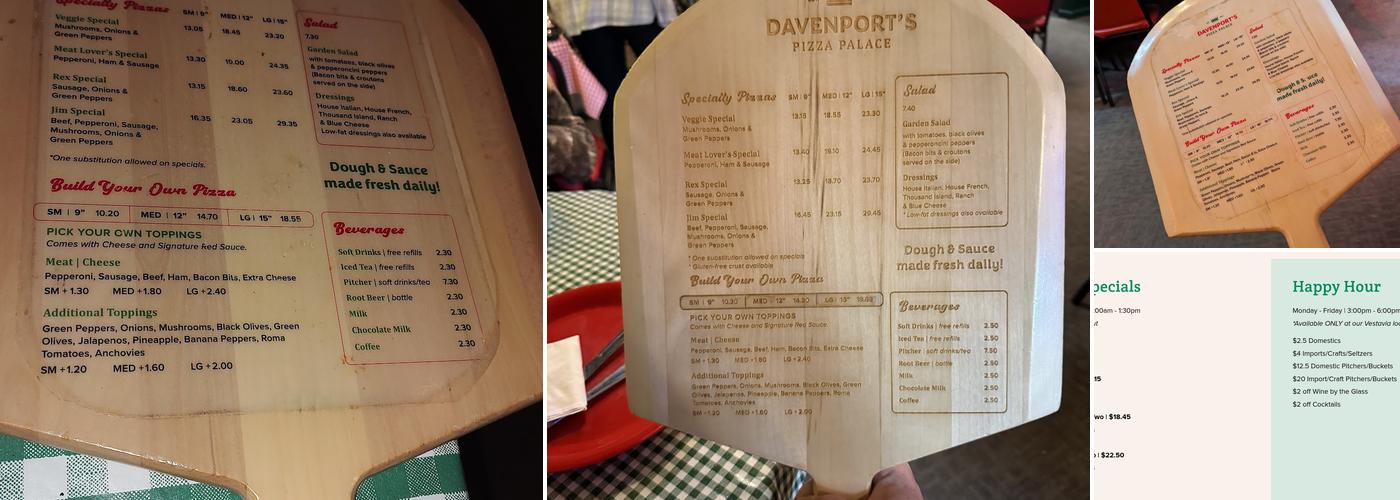 Specialty Pizzas SM | 9" MED | 12" LG | 15"
Veggie Special 13.05 18.45 23.20
Mushrooms, Onions &
Green Peppers
Meat Lover's Special 13.30 19.00 24.35
Pepperoni, Ham & Sausage
Rex Special 13.15 18.60 23.60
Sausage, Onions &
Green Peppers
Jim Special 16.35 23.05 29.35
Beef, Pepperoni, Sausage,
Mushrooms, Onions &
Green Peppers
*One substitution allowed on specials.
Build Your Own Pizza
SM | 9" 10.20 MED | 12" 14.70 LG | 15" 18.55
PICK YOUR OWN TOPPINGS
Comes with Cheese and Signature Red Sauce.
Meat | Cheese
Pepperoni, Sausage, Beef, Ham, Bacon Bits, Extra Cheese
SM +1.30 MED +1.80 LG +2.40
Additional Toppings
Green Peppers, Onions, Mushrooms, Black Olives, Green
Olives, Jalapenos, Pineapple, Banana Peppers, Roma
Tomatoes, Anchovies
SM +1.20 MED +1.60 LG +2.00
Salad
7.30
Garden Salad
with tomatoes, black olives
& pepperoncini peppers
(Bacon bits & croutons
served on the side)
Dressings
House Italian, House French,
Thousand Island, Ranch
& Blue Cheese
*Low-fat dressings also available
Dough & Sauce
made fresh daily!
Beverages
Soft Drinks | free refills 2.30
Iced Tea | free refills 2.30
Pitcher | soft drinks/tea 7.30
Root Beer | bottle 2.30
Milk 2.30
Chocolate Milk 2.30
Coffee 2.30
DAVENPORT'S
PIZZA PALACE
Specialty Pizzas SM | 9" MED | 12" LG | 15"
Veggie Special 13.15 18.55 23.30
Mushrooms, Onions &
Green Peppers
Meat Lover's Special 13.40 19.10 24.45
Pepperoni, Ham & Sausage
Rex Special 13.25 18.70 23.70
Sausage, Onions &
Green Peppers
Jim Special 16.45 23.15 29.45
Beef, Pepperoni, Sausage,
Mushrooms, Onions &
Green Peppers
* One substitution allowed on specials
* Gluten-free crust available
Build Your Own Pizza
SM | 9" 10.30 MED | 12" LG | 15"
PICK YOUR OWN TOPPINGS
Comes with Cheese and Signature Red Sauce.
Meat | Cheese
Pepperoni, Sausage, Beef, Ham, Bacon Bits, Extra Cheese
SM +1.30 MED +1.80 LG +2.40
Additional Toppings
Green Peppers, Onions, Mushrooms, Black Olives, Green
Olives, Jalapenos, Pineapple, Banana Peppers, Roma
Tomatoes, Anchovies
SM +1.20 MED +1.60 LG +2.00
Salad
7.40
Garden Salad
with tomatoes, black olives
& pepperoncini peppers
(Bacon bits & croutons
served on the side)
Dressings
House Italian, House French,
Thousand Island, Ranch
& Blue Cheese
* Low-fat dressings also available
Dough & Sauce
made fresh daily!
Beverages
Soft Drinks | free refills 2.50
Iced Tea | free refills 2.50
Pitcher | soft drinks/tea 7.50
Root Beer | bottle 2.50
Milk 2.50
Chocolate Milk 2.50
Coffee 2.50
DAVENPORT'S
PIZZA PALACE
Specialty Pizzas
Salad
Dough & Sauce
made fresh daily!
Build Your Own Pizza
Beverages
pecials
:00am - 1:30pm
15
wo | $18.45
| $22.50
Happy Hour
Monday - Friday | 3:00pm - 6:00pm
*Available ONLY at our Vestavia
$2.5 Domestics
$4 Imports/Crafts/Seltzers
$12.5 Domestic Pitchers/Buckets
$20 Import/Craft Pitchers/Buckets
$2 off Wine by the Glass
$2 off Cocktails